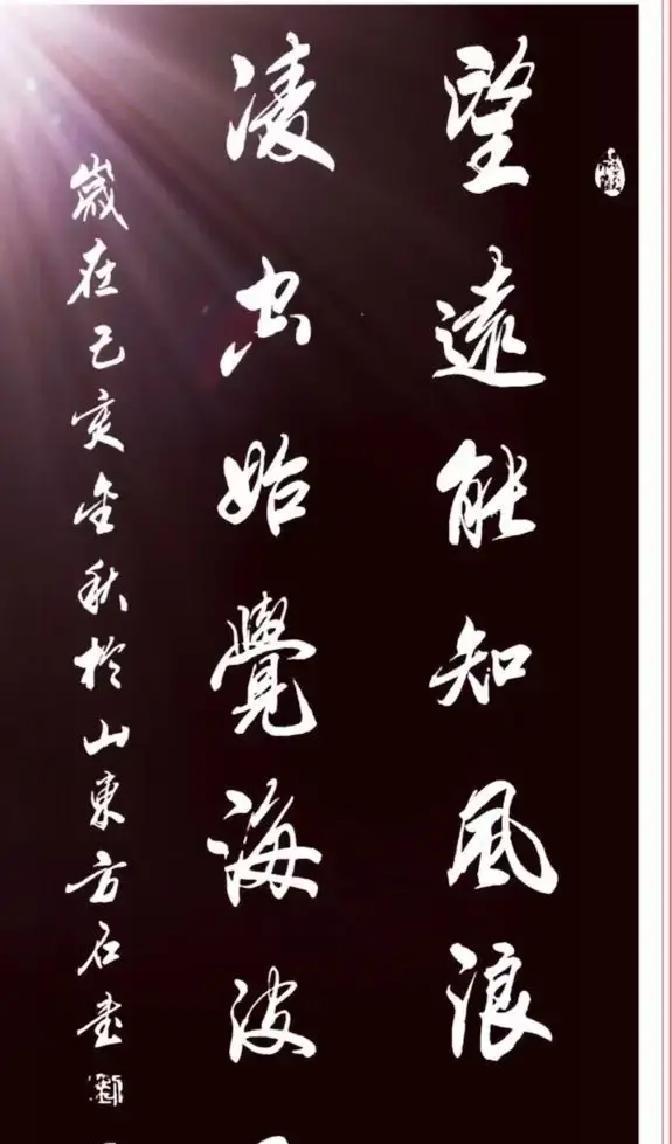 望遠能知風浪
凌空始覺海波
歲在己亥金秋於山東方石書